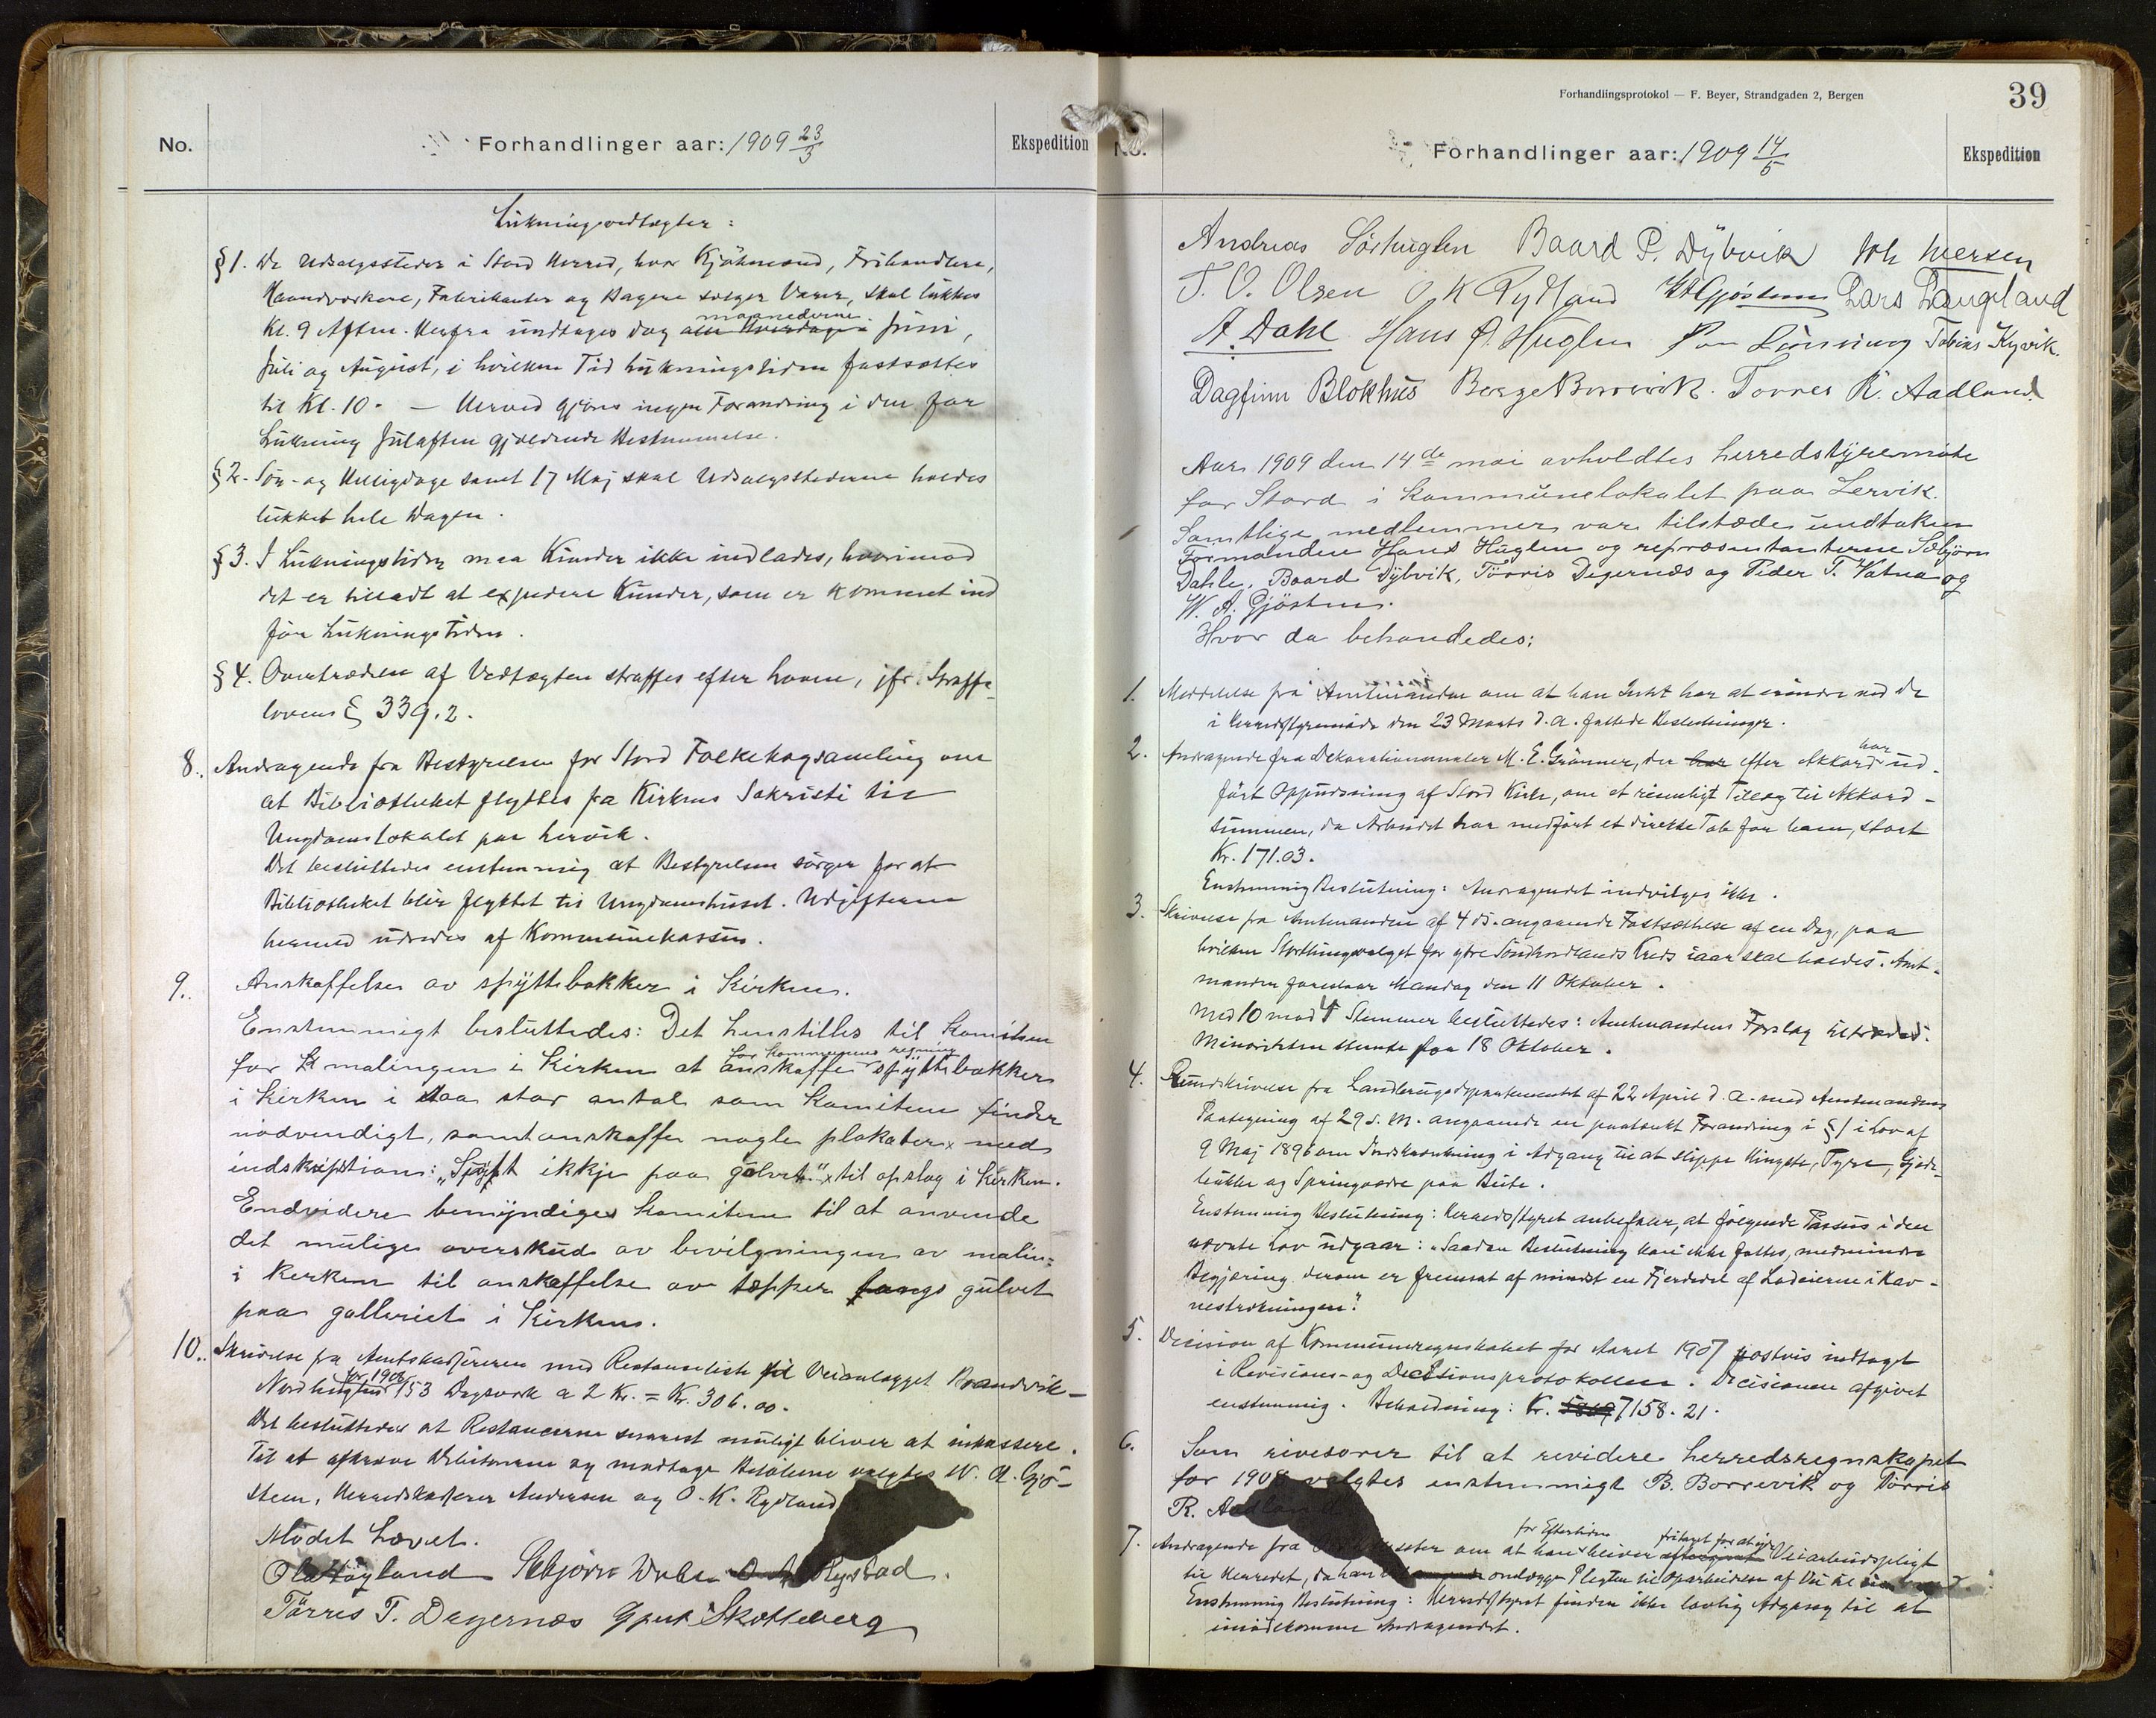 No. Forhandlinger aar: 1909 23/3 Ekspedition
Lukningsvedtægter:
§ 1. De Udsalgssteder i Stord Herred, hvor Kjøbmænd, Frihandlere,
Haandværkere, Fabrikanter og Bagere sælger Varer, skal lukkes
maanederne
Kl. 9 Aften. Herfra undtages dog alle Hverdage i Juni,
Juli og August, i hvilken Tid Lukningstiden fastsættes
til Kl. 10. — Herved gjøres ingen Forandring i den for
Lukning Julaften gjældende Bestemmelse.
§ 2. Søn- og Helligdage samt 17 Maj skal Udsalgsstederne holdes
lukket hele Dagen.
§ 3. I Lukningstiden maa Kunder ikke indlades, hvorimod
det er tilladt at expedere Kunder, som er kommet ind
før Lukningstiden.
§ 4. Overtrædelse af Vedtægten straffes efter Loven, jfr. Straffe-
lovens § 339.2.
8. Andragende fra Bestyrelsen for Stord Folkebogsamling om
at Bibliotheket flyttes fra Kirkens Sakristi til
Ungdomslokalet paa Lervik.
Det besluttedes enstemmig at Bestyrelsen sørger for at
Bibliotheket blir flyttet til Ungdomshuset. Udgifterne
hermed udredes af Kommunekassen.
9. Anskaffelse av spyttebakker i Kirken.
Enstemmigt besluttedes: Det henstilles til Komiteen
for kommunens regning
for malingen i Kirken at anskaffe spyttebakker
i Kirken i saa stor antal som Komiteen finder
nødvendigt, samt anskaffe nogle plakater med
indskription: "Spyt ikkje paa golvet" til opslag i Kirken.
Endvidere bemyndiges Komiteen til at anvende
det mulige overskud av bevilgningen av malin=
i kerken til anskaffelse av tæpper langs gulvet
paa galleriet i Kirken.
10. Skrivelse fra Amtskassereren med Restanseliste til Veianlægget Brandvik-
for 1908
Nordhuglen 153 Dagsverk a 2 Kr. = Kr. 306.00.
Det besluttedes at Restancerne snarest muligt bliver at inkassere.
Til at afkræve Debitorerne og modtage Beløbene valgtes W. A. Gjø-
steen, Herredskasserer Andersen og O. K. Rydland
Mødet hævet.
Ola Høyland Sebjørn Dale O. A. Rystad
Tørres T. Dagernæs Gjert Skotteberg
Forhandlingsprotokol — F. Beyer, Strandgaden 2, Bergen
39
No. Forhandlinger aar: 1909 14/5 Ekspedition
Andreas Sørhuglen Baard P. Dybvik Joh Iversen
T. O. Olsen O K Rydland W A Gjøsteen Lars Langeland
A. Dahl Hans J. Huglen Lønning Tobias Kyvik.
Dagfinn Blokhus Berge Borrevik. Torres R. Aadland.
Aar 1909 den 14de mai avholdtes herredstyremøte
for Stord i kommunelokalet paa Lervik.
Samtlige medlemmer var tilstæde undtaken
Formanden Hans Huglen og repræsentanterne Sebjørn
Dahle, Baard Dybvik, Tørris Degernæs og Peder T. Vatna og
W. A. Gjøsteen.
Hvor da behandledes:
1. Meddelelse fra Amtmanden om at han Intet har at erindre ved de
i Herredstyremøde den 23 Marts d. a. fattede Beslutninger.
har
2. Andragende fra Dekorationsmaler M. E. Grønner, der har efter Akkord ud-
ført Oppudsning af Stord Kirke, om et rimeligt Tillæg til Akkord-
summen, da Arbeidet har medført et direkte Tab for ham, stort
Kr. 171.03.
Enstemmig Beslutning: Andragendet indvilges ikke.
3. Skrivelse fra Amtmanden af 4 ds. angaaende Fastsættelse af en Dag, paa
hvilken Storthingsvalget for ytre Søndhordlands Kreds iaar skal holdes. Amt-
manden foreslaar Mandag den 11 Oktober.
Med 10 mod 4 Stemmer besluttedes: Amtmandens Forslag tiltrædes.
Minoriteten stemte for 18 Oktober.
4. Rundskrivelse fra Landbrugsdepartementet af 22 April d. a. med Amtmandens
Paategning af 29 s. M. angaaende en paatænkt Forandring i § 1 i Lov af
9 Maj 1896 om Indskrænkning i Adgang til at slippe Hingste, Tyre, Gjede-
bukke og Springvædre paa Beite.
Enstemmig Beslutning: Herredsstyret anbefaler, at følgende Passus i den
nævnte Lov udgaar: "Saadan Beslutning kan ikke fattes, medmindre
Begjæring derom er fremsat af mindst en Fjerdedel af Lodeierne i Hav-
nestrækningen".
5. Decision af Kommuneregnskabet for Aaret 1907 postvis indtaget
i Revisions- og Decisionsprotokollen. Decisionen afgivet
enstemmig. Beholdning: Kr. 7158.21.
6. Som rivesorer til at revidere herredsregnskapet
for 1908 valgtes enstemmigt B. Borrevik og Tørris
R. Aadland
for Eftertiden fritaget for at yde
7. Andragende fra om at han bliver Veiarbeidspligt
til Herredet, da han Pligten til Oparbeidelse af Vei til
Enstemmig Beslutning: Herredsstyret finder ikke lovlig Adgang til at
imødekomme Andragendet.